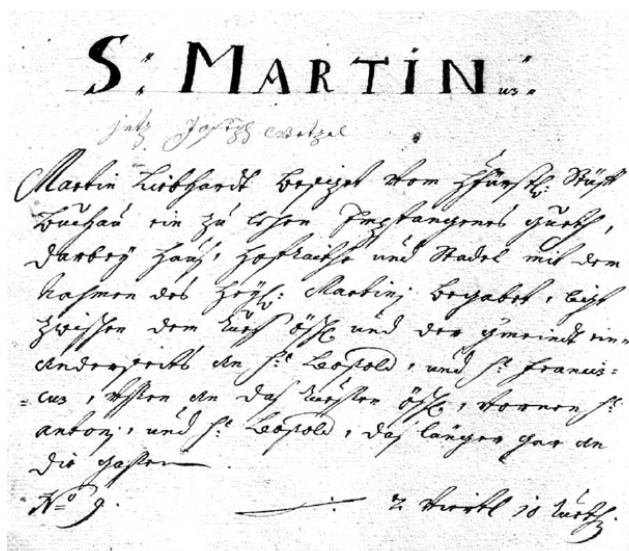 S: MARTINus:
jetz Joseph Wetzel
Martin Liebhardt besizet vom hfürstl: Stüft
Buchau ein zu Lehen Empfangenes Gueth,
darbey Hauß, Hofraithe und Stadel mit dem
Nahmen des Heyl: Martinj begabet, ligt
zwischen dem und der gmeindt ein=
anderseits an St: Leopold, und St: Francis=
=cus, an das, vornen St:
Antonj, und St: Leopold, das länger gar an
die gassen
No 9. 2 Viertl 10